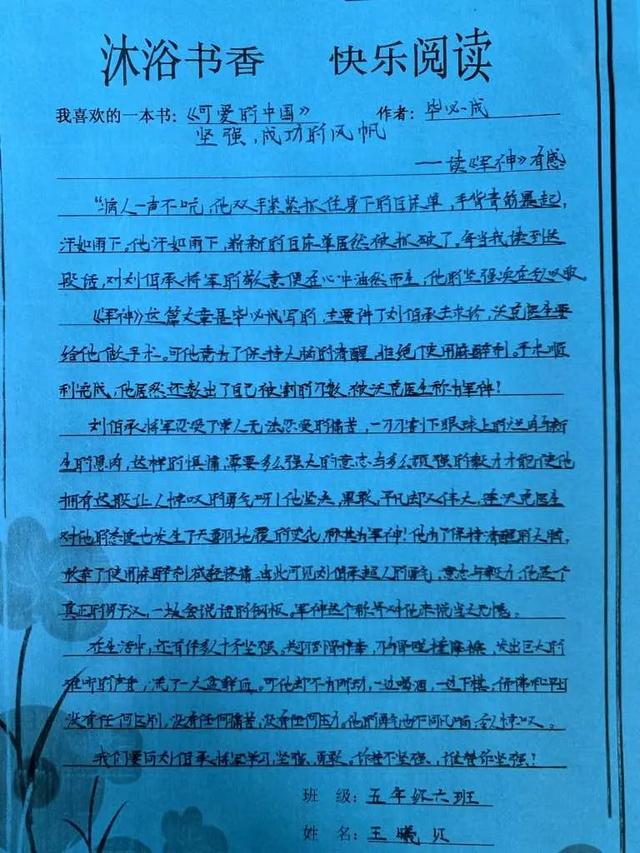 沐浴书香 快乐阅读
我喜欢的一本书：《可爱的中国》 作者：毕必成
坚强，成功的风帆
——读《军神》有感
“病人一声不吭，他双手紧紧抓住身下的白床单，手背青筋暴起，
汗如雨下。他汗如雨下，崭新的白床单居然被抓破了。每当我读到这
段话，对刘伯承将军的敬意便在心中油然而生，他的坚强实在令人敬
《军神》这篇文章是毕必成写的，主要讲了刘伯承去求诊，沃克医生要
给他做手术。可他竟为了保持大脑的清醒，拒绝使用麻醉剂。手术顺
利完成，他居然还数出了自己被割的刀数，被沃克医生称为军神！
刘伯承将军忍受了常人无法忍受的痛苦，一刀刀割下眼球上的烂肉与新
生的息肉，这样的惧痛，需要多么强大的意志与多么顽强的毅力才能使他
拥有这股让人惊叹的勇气呀！他坚决，果敢，平凡却又伟大，连沃克医生
对他的态度也发生了天翻地覆的变化，称其为军神！他为了保持清醒的大脑，
放弃了使用麻醉剂减轻疼痛，由此可见刘伯承超人的勇气，意志与毅力，他是个
真正的男子汉，一块会说话的钢板。军神这个称号对他来说当之无愧。
在生活中，还有许多人十分坚强。关羽刮骨疗毒，刀与骨 摩擦，发出巨大的
难听的声音，流了一大盆鲜血。可他却不为所动，一边喝酒，一边下棋，仿佛和平日
没有任何区别，没有任何痛苦，没有任何压力。他的勇气 令人惊叹。
我们要向刘伯承将军学习坚强、勇敢。你若不坚强，谁替你坚强！
班 级：五年级六班
姓 名：王曦贝